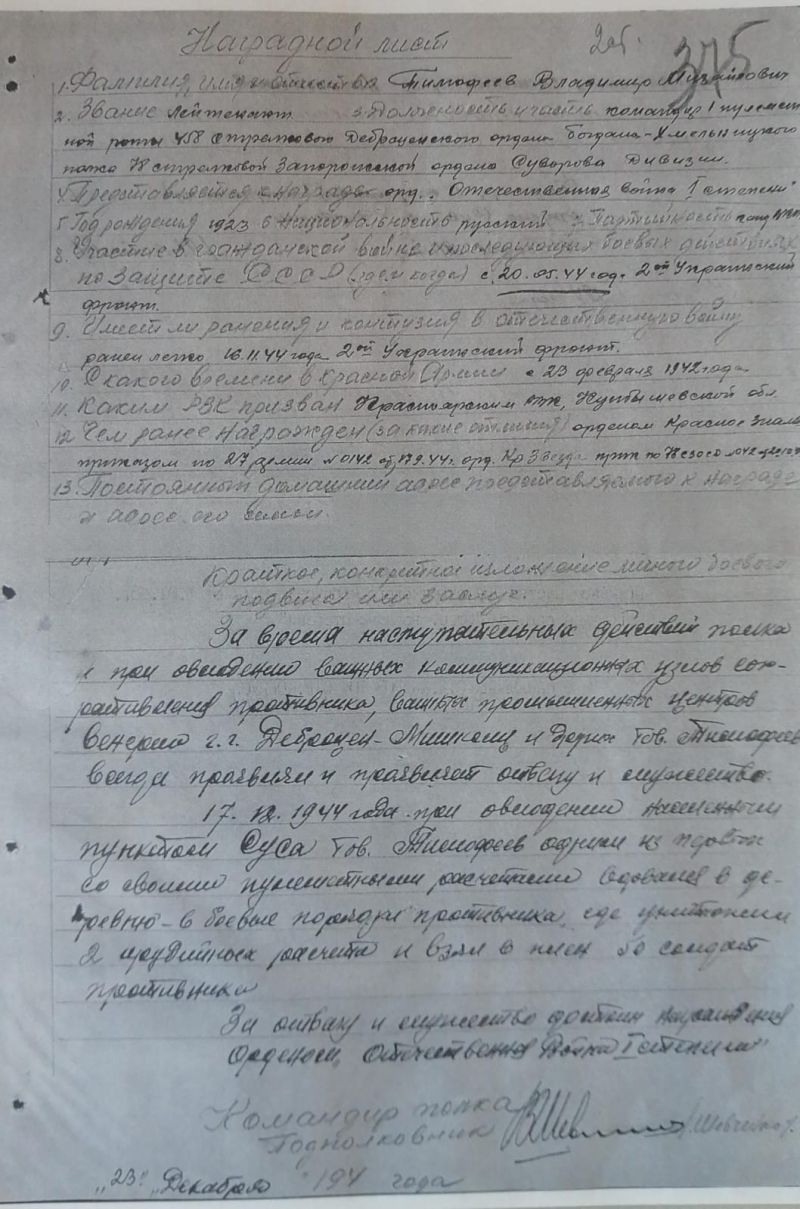 Наградной лист
375
1. Фамилия, имя и отчество Тимофеев Владимир Михайлович
2. Звание лейтенант 3. Должность и часть командир 1 пулемет-
ной роты 458 стрелкового Дебреценского ордена Богдана-Хмельницкого
полка 78 стрелковой Запорожской ордена Суворова Дивизии.
4. Представляется к награде орд. „Отечественная война I степени"
5. Год рождения 1923 6 Национальность русский 7. Партийность канд.
8. Участие в гражданской войне и последующих боевых действиях
по защите СССР (где и когда) с 20.05.44 год. 2ой Украинский
фронт.
9. Имеет ли ранения и контузия в отечественную войну
ранен легко 16.11.44 года 2ой Украинский фронт.
10. С какого времени в красной Армии с 23 февраля 1942 года
11. Каким РВК призван Красноярским РВК, Куйбышевской обл.
12. Чем ранее награжден (за какие отличия) орденом Красное Знамя
приказом по 27 армии №0142 от 17.9.44г. орд. Кр Звезда
13. Постоянный домашний адрес представляемого к награде
и адрес его семьи.
Краткое, конкретное изложение личного боевого
подвига или заслуг.
За время наступательных действий полка
и при овладении важных коммуникационных узлов соп-
ротивления противника, важных промышленных центров
Венгрии г.г. Дебрецен-Мишкольц и других тов. Тимофеев
всегда проявлял и проявляет отвагу и мужество.
17.12.1944 года при овладении населенным
пунктом Суса тов. Тимофеев одним из первых
со своими пулеметными расчетами ворвался в де-
ревню - в боевые порядки противника, где уничтожил
2 орудийных расчета и взял в плен 50 солдат
противника
За отвагу и мужество достоин награждения
Орденом „Отечественная Война I степени"
Командир полка
Подполковник /Шевченко/.
„23" „Декабря 194 года